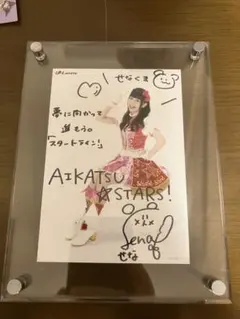 せなくま
夢に向かって
進もう。
「スタートライン！」
AIKATSU
☆STARS!
Sena
せな